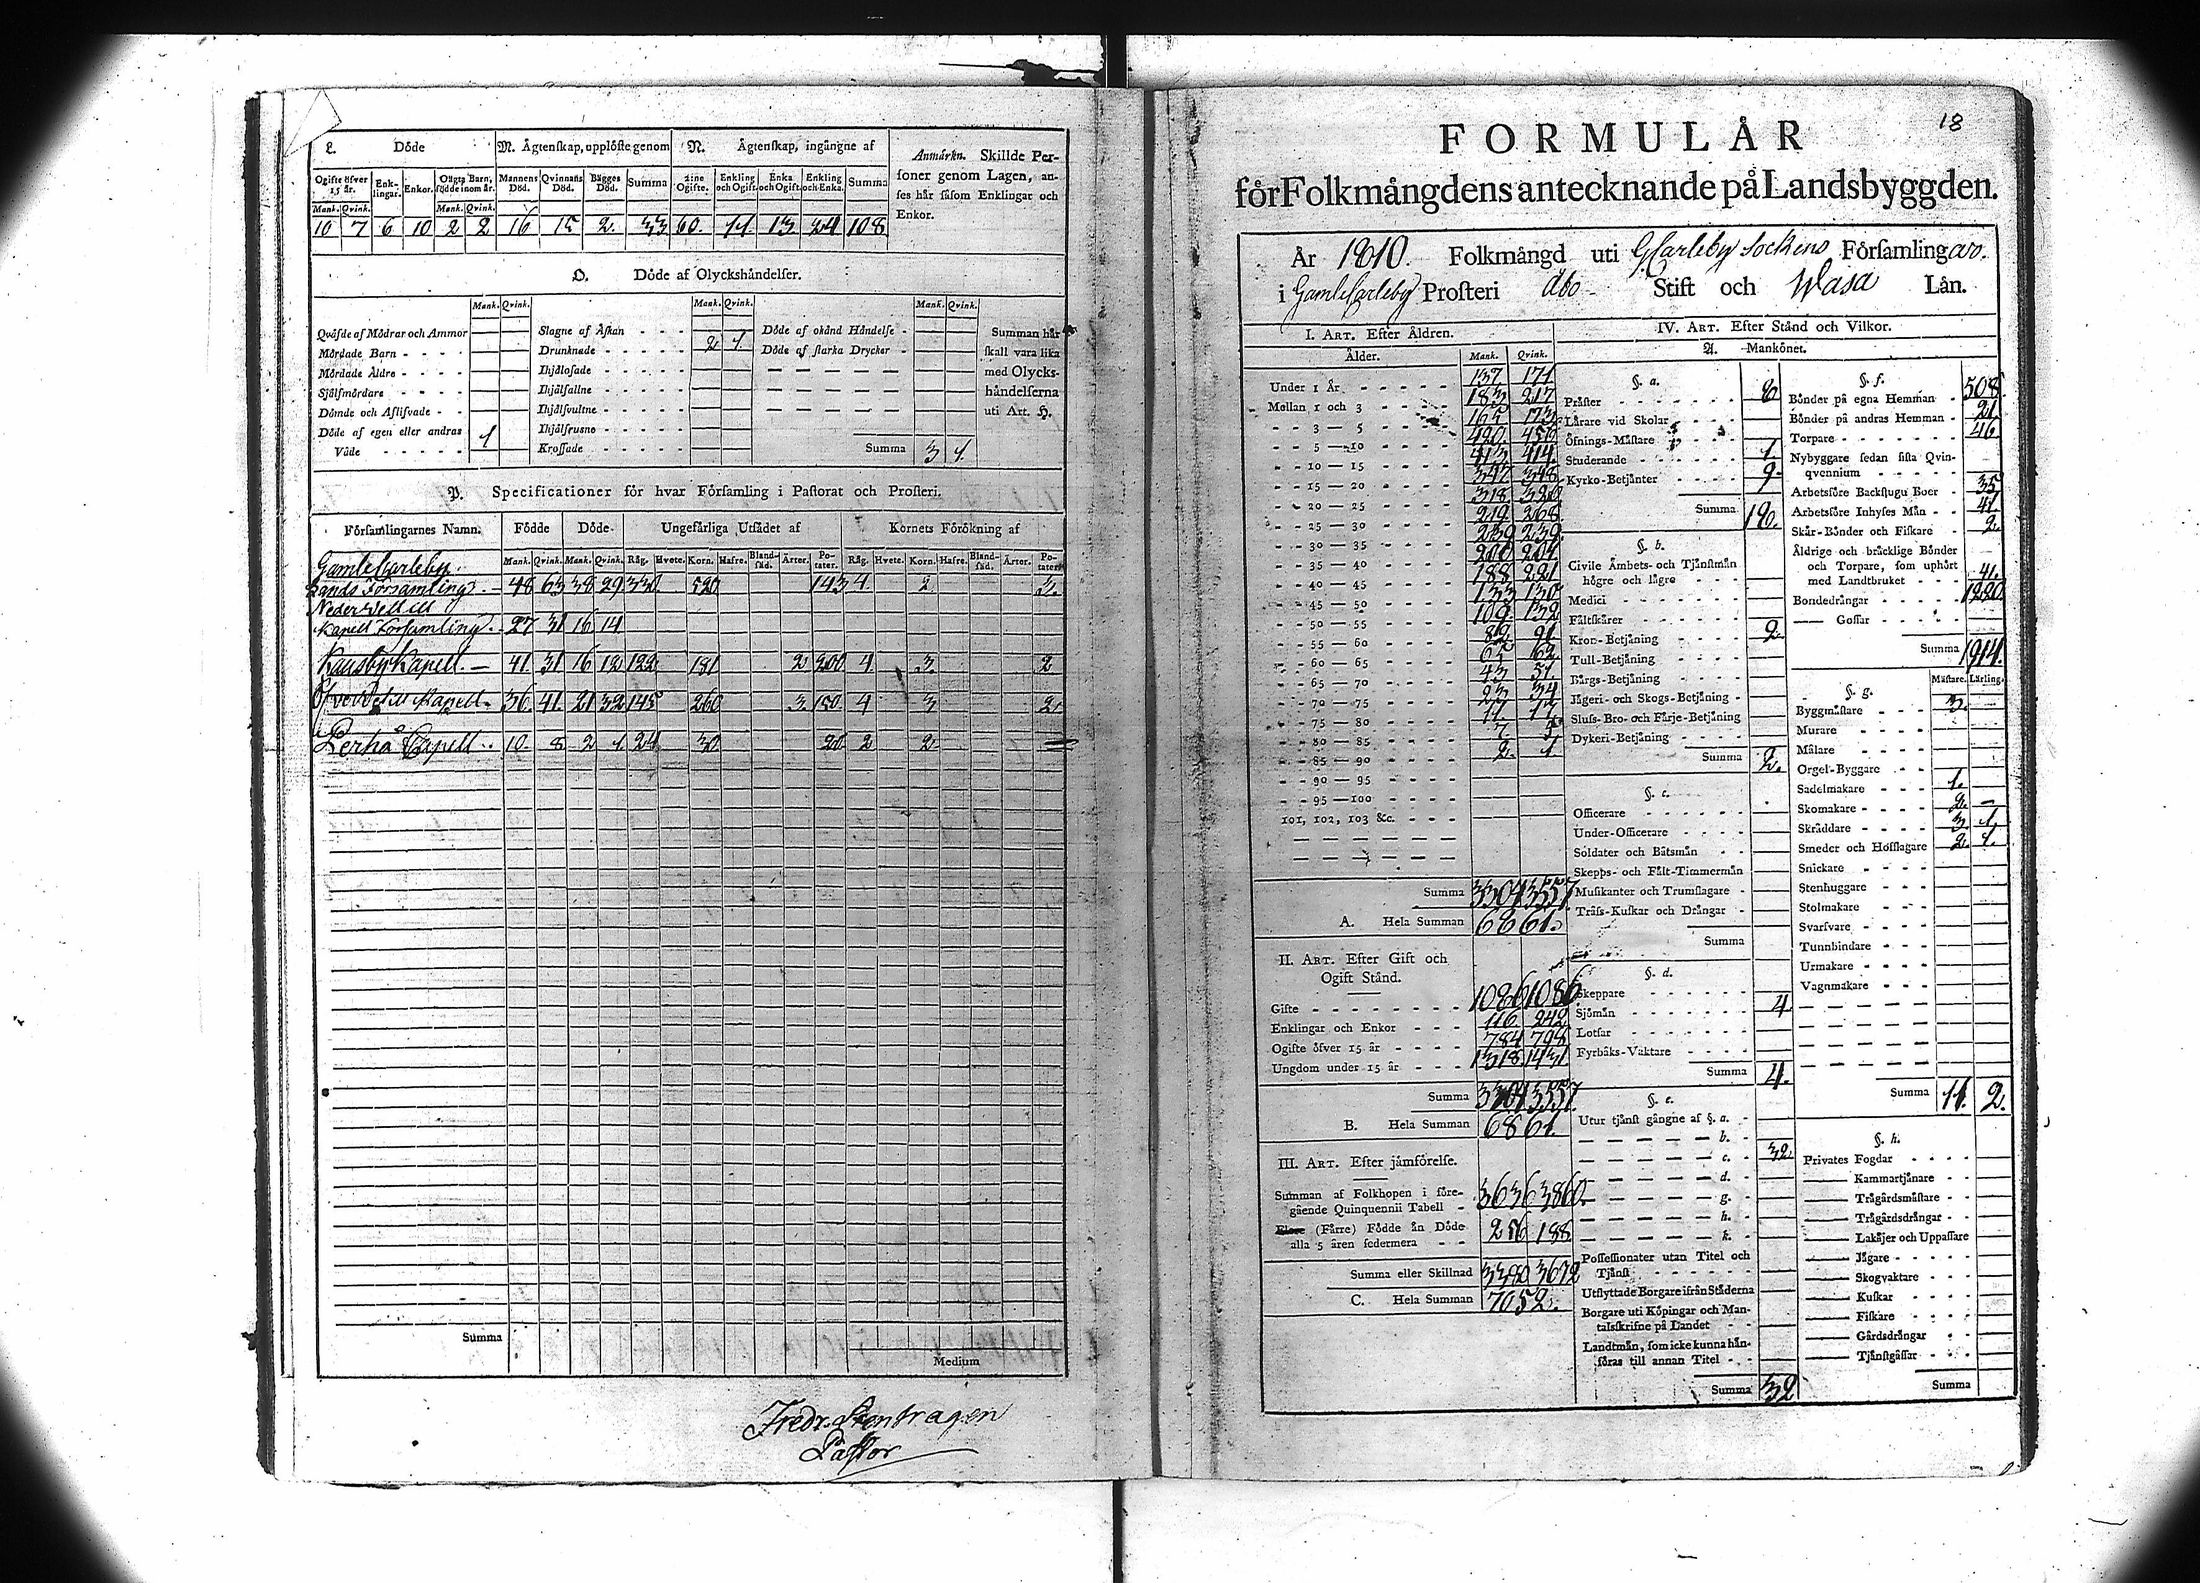 L. Döde
M. Ägtenskap, upplöste genom
N. Ägtenskap, ingångne af
Anmärkn. Skillde Personer genom Lagen, anses här såsom Enklingar och Enkor.
Ogifte öfver 15 år. Enklingar. Enkor. Oägta Barn, födde inom år. Mannens Död. Qvinnans Död. Bägges Död. Summa Enkling och Ogift. Enka och Ogift. Enkling och Enka. Summa
Mank. Qvink. Mank. Qvink.
10 7 6 10 2 2 16 15 2. 33 60. 11. 13. 24 108
O. Döde af Olyckshändelser.
Mank. Qvink. Mank. Qvink. Mank. Qvink.
Qväfde af Mödrar och Ammor
Mördade Barn
Mördade Äldre
Självmördare
Dömde och Aflifvade
Döde af egen eller andras Våde 1
Slagne af Åskan
Drunknade 2 1.
Ihjälosade
Ihjälfallne
Ihjälsvultne
Ihjälfrusne
Krossade
Döde af okänd Händelse
Döde af starka Drycker
Summa 3 1.
Summan här skall vara lika med Olyckshändelserna uti Art. H.
P. Specificationer för hvar Församling i Pastorat och Prosteri.
Församlingarnes Namn. Födde Döde Ungefärliga Utsädet af Kornets Förökning af
Mank. Qvink. Mank. Qvink. Råg. Hvete. Korn. Hafre. Blandsäd. Ärter. Potater. Råg. Hvete. Korn. Hafre. Blandsäd. Ärter. Potater.
Gamle Carleby
Lands Församling. 48 63 38 29 330 520 143 4. 2
Nedervetill
Kapell Församling. 27 31 16 14
Kausby Kapell. 41. 31 16 12 122 181 2 200 4 3. 2
Öfvervetill Kapell. 36. 41. 21 32 145 260 3 150. 4 3 2.
Perho Capell. 10. 8 2 1. 24 30 20 2 2
Summa
Medium
Fredr. Stenhagen
Pastor
18
FORMULÄR
för Folkmängdens antecknande på Landsbyggden.
År 1810. Folkmängd uti G. Carleby Sockens Församlingar.
i Gamle Carleby Prosteri Åbo Stift och Wasa Län.
I. Art. Efter Åldren.
Ålder. Mank. Qvink.
Under 1 År 137. 171
Mellan 1 och 3 183 217
3 — 5 165 173
5 — 10 420. 456
10 — 15 413 414.
15 — 20 347 348
20 — 25 318. 320
25 — 30 219. 268
30 — 35 239 239
35 — 40 200 204
40 — 45 188 221
45 — 50 133 130
50 — 55 109. 132
55 — 60 82 91
60 — 65 65 62
65 — 70 43 51.
70 — 75 23 34
75 — 80 11. 17
80 — 85 7
85 — 90 2. 1
90 — 95
95 — 100
101, 102, 103 &c.
Summa 3304 3557.
A. Hela Summan 6861.
II. Art. Efter Gift och Ogift Stånd.
Gifte 1086 1086
Enklingar och Enkor 116 242
Ogifte öfver 15 år 784 798
Ungdom under 15 år 1318 1431
Summa 3304 3557.
B. Hela Summan 6861.
III. Art. Efter jämförelse.
Summan af Folkhopen i föregående Quinquennii Tabell 3636 3860.
(Färre) Födde än Döde alla 5 åren sedermera 256 188
Summa eller Skillnad 3380 3672
C. Hela Summan 7052.
IV. Art. Efter Stånd och Vilkor.
A. Mankönet.
§. a.
Präster 8
Lärare vid Skolar
Öfnings-Mästare
Studerande 1.
Kyrko-Betjänter 9.
Summa 18.
§. b.
Civile Ämbets- och Tjänstmän högre och lägre
Medici
Fältskärer
Kron-Betjäning 2
Tull-Betjäning
Bärgs-Betjäning
Jägeri- och Skogs-Betjäning
Sluss- Bro- och Färje-Betjäning
Dykeri-Betjäning
Summa 2.
§. c.
Officerare
Under-Officerare
Soldater och Båtsmän
Skepps- och Fält-Timmermän
Musikanter och Trumslagare
Träss-Kuskar och Drängar
Summa
§. d.
Skeppare
Sjömän 4
Lotsar
Fyrbåks-Vaktare
Summa 4.
§. e.
Utur tjänst gångne af §. a.
b.
c. 32
d.
g.
h.
k.
Possessionater utan Titel och Tjänst
Utflyttade Borgare ifrån Städerna
Borgare uti Köpingar och Mantalsskrifne på Landet
Landtmän, som icke kunna hänföras till annan Titel
Summa 32
§. f.
Bönder på egna Hemman 508.
Bönder på andras Hemman 21.
Torpare 46
Nybyggare sedan sista Qvinqvennium
Arbetsföre Backstugu Boer 35
Arbetsföre Inhyses Män 41.
Skär-Bönder och Fiskare 2.
Äldrige och bräcklige Bönder och Torpare, som uphört med Landtbruket 41.
Bondedrängar 1220
Gossar
Summa 1914.
§. g. Mästare. Lärling.
Byggmästare 3.
Murare
Målare
Orgel-Byggare
Sadelmakare 1.
Skomakare 2. —
Skräddare 3. 1.
Smeder och Hofslagare 2. 1.
Snickare
Stenhuggare
Stolmakare
Svarfvare
Tunnbindare
Urmakare
Vagnmakare
Summa 11. 2.
§. h.
Privates Fogdar
Kammartjänare
Trägårdsmästare
Trägårdsdrängar
Lakajer och Uppassare
Jägare
Skogvaktare
Kuskar
Fiskare
Gårdsdrängar
Tjänstgåssar
Summa